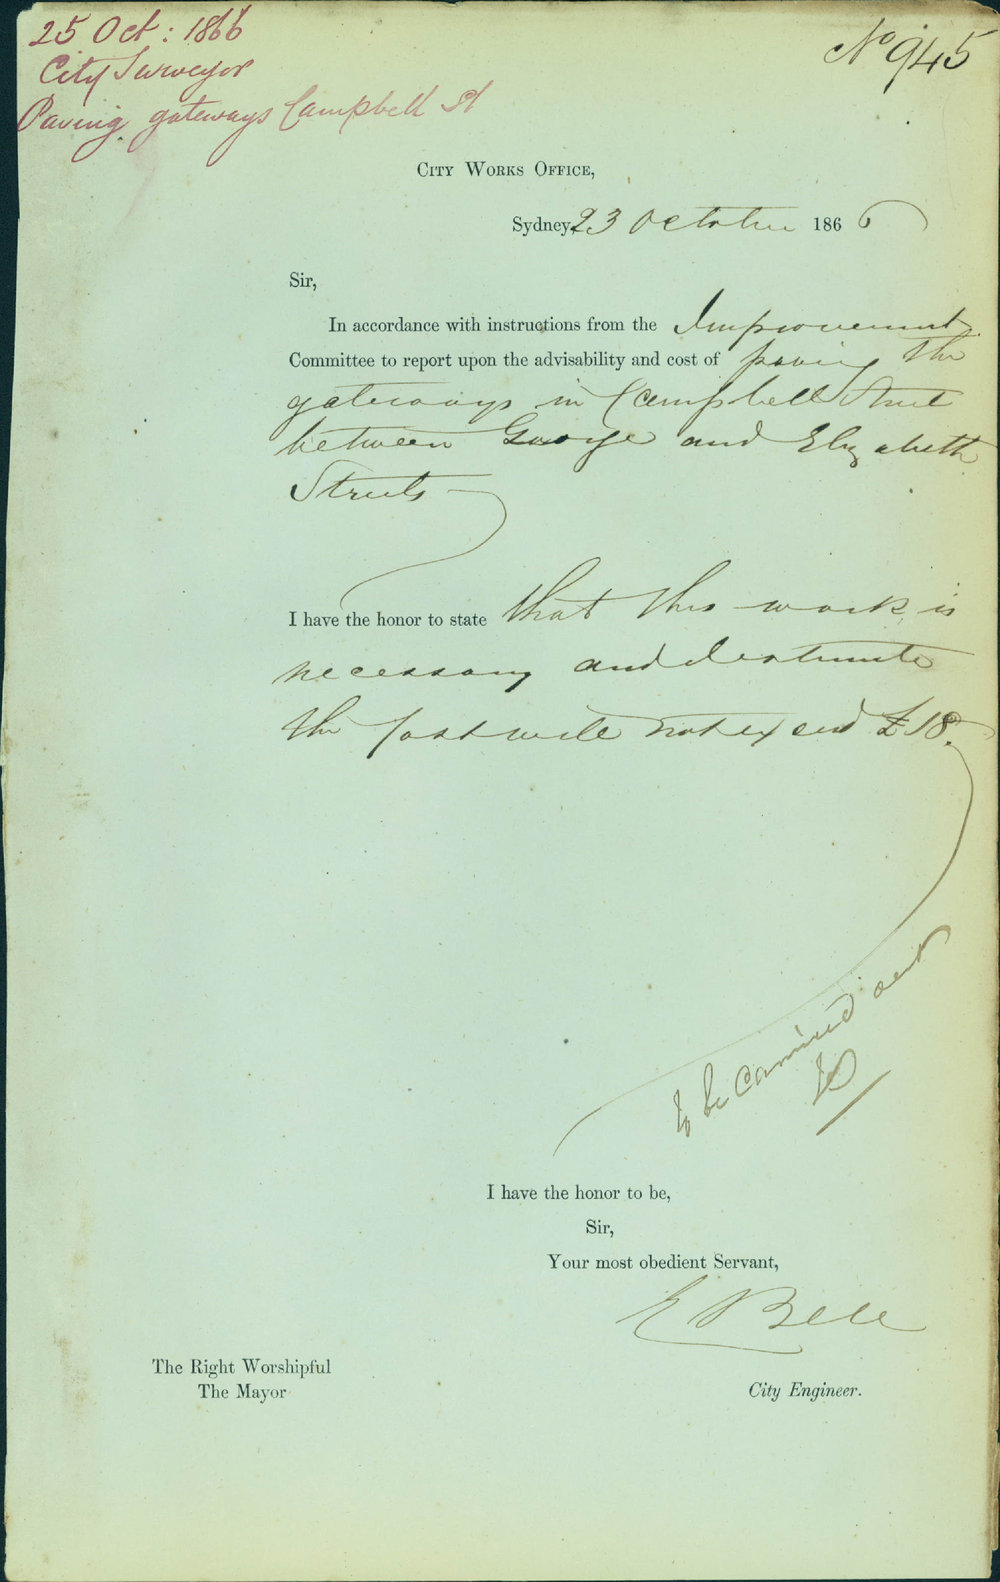 25 Oct: 1866
City Surveyor
Paving gateways Campbell St
No 945
City Works Office,
Sydney, 23 October 1866
Sir,
In accordance with instructions from the Improvement
Committee to report upon the advisability and cost of paving the
gateways in Campbell Street
between George and Elizabeth
Streets
I have the honor to state that this work is
necessary and I estimate
the cost will not exceed £18.
to be carried out
I have the honor to be,
Sir,
Your most obedient Servant,
E Bell
The Right Worshipful
The Mayor
City Engineer.